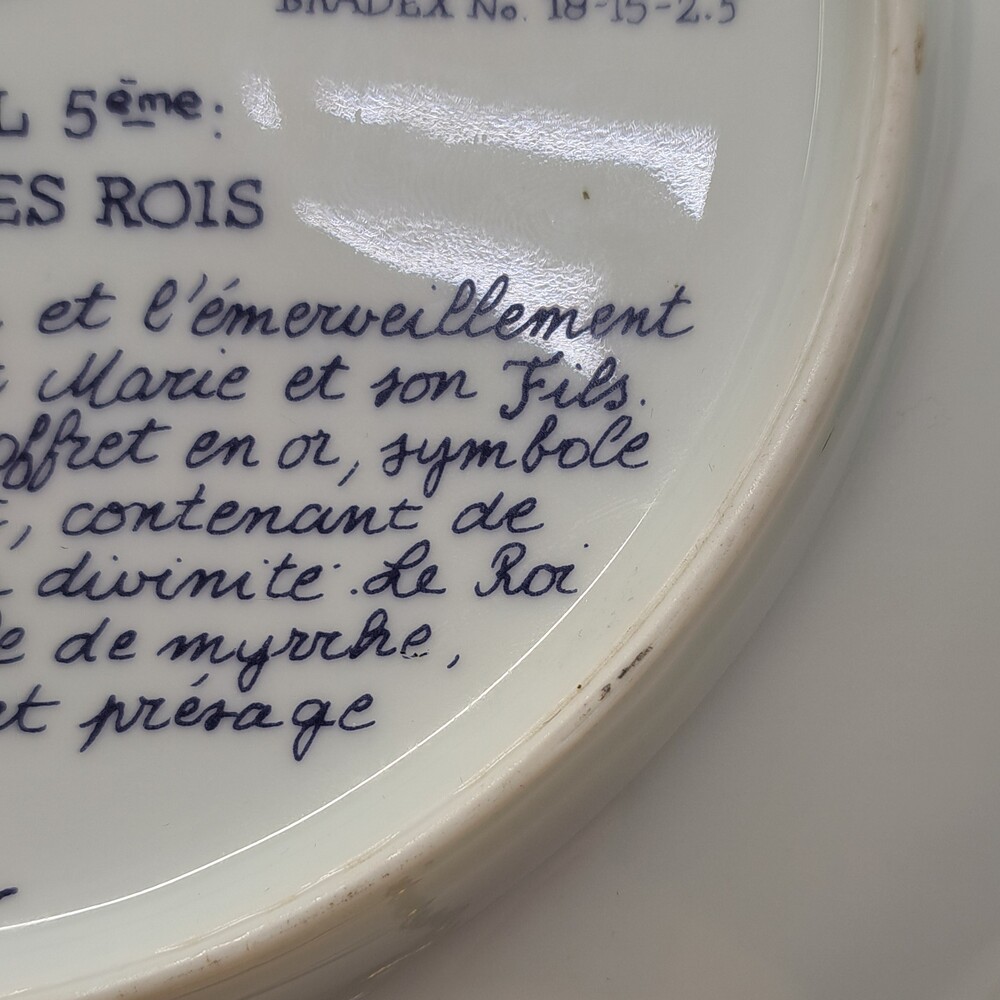 BRADEX No. 18-15-2.5
L 5ème:
ES ROIS
et l'émerveillement
Marie et son Fils.
offret en or, symbole
, contenant de
divinité. Le Roi
e de myrrhe,
et présage